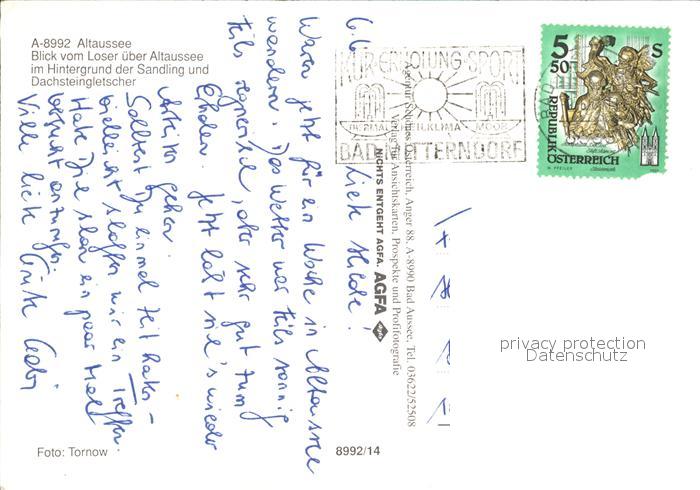 A-8992 Altaussee
Blick vom Loser über Altaussee
im Hintergrund der Sandling und
Dachsteingletscher
6.6.
Liebe Hilde!
Waren jetzt für ein Woche in Altaussee
wandern. Das Wetter war teils sonnig
teils regnerisch, aber sehr gut zum
Erholen. Jetzt heißt sie's wieder
Arbeiten gehen.
Solltest Du einmal Zeit haben –
vielleicht schaffen wir ein Treffen.
Habe Dich schon ein paar Mal
versucht anzurufen.
Viele liebe Grüße Gabi
Foto: Tornow
8992/14
NICHTS ENTGEHT AGFA. AGFA
Verlag für Ansichtskarten, Prospekte und Profifotografie
Österreich, Anger 88, A-8990 Bad Aussee, Tel. 03622/52508
KUR-ERHOLUNG-SPORT
THERMAL HEILKLIMA MOOR
BAD MITTERNDORF
5 50 S
REPUBLIK
ÖSTERREICH
privacy protection
Datenschutz